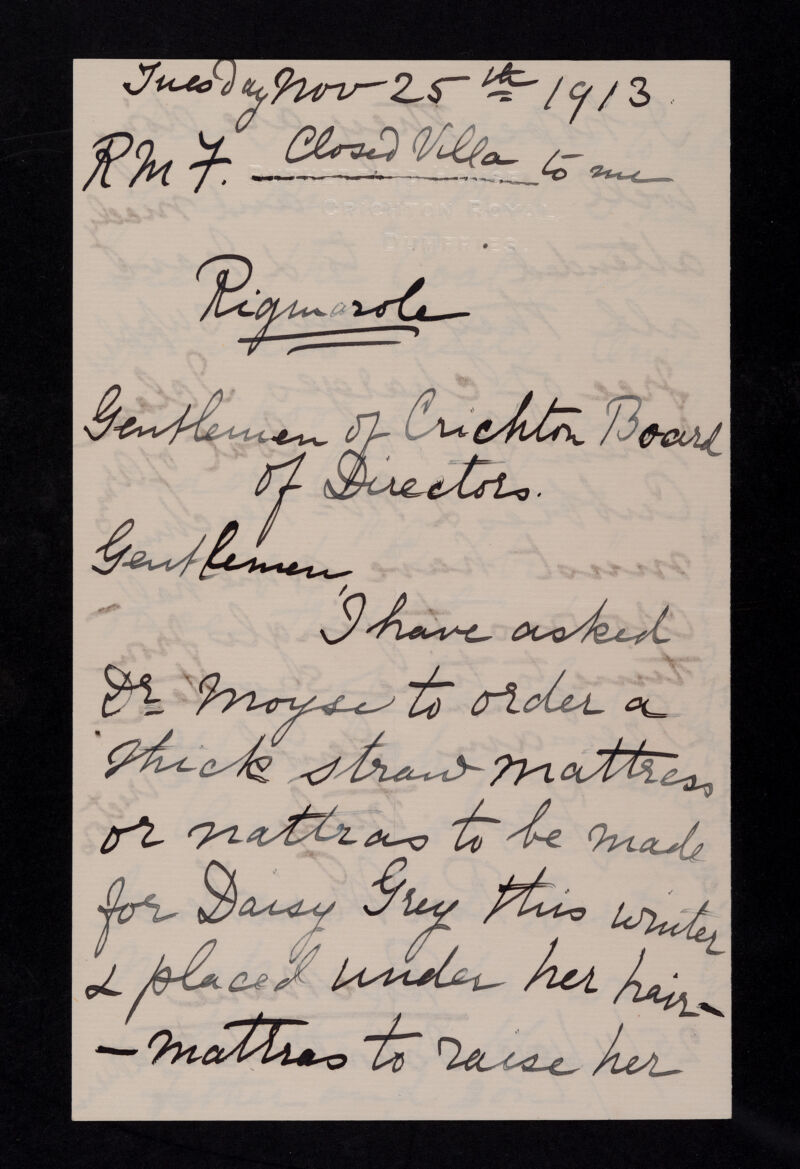 Tuesday Nov 25th 1913
R M F. Closed Villa to me
CRICHTON ROYAL
DUMFRIES.
Rigmarole
Gentlemen of Crichton Board
of Directors.
Gentlemen,
I have asked
Dr Moyse to order a
thick straw mattress
or nattras to be made
for Daisy Grey this winter
& placed under her hair-
-mattras to raise her